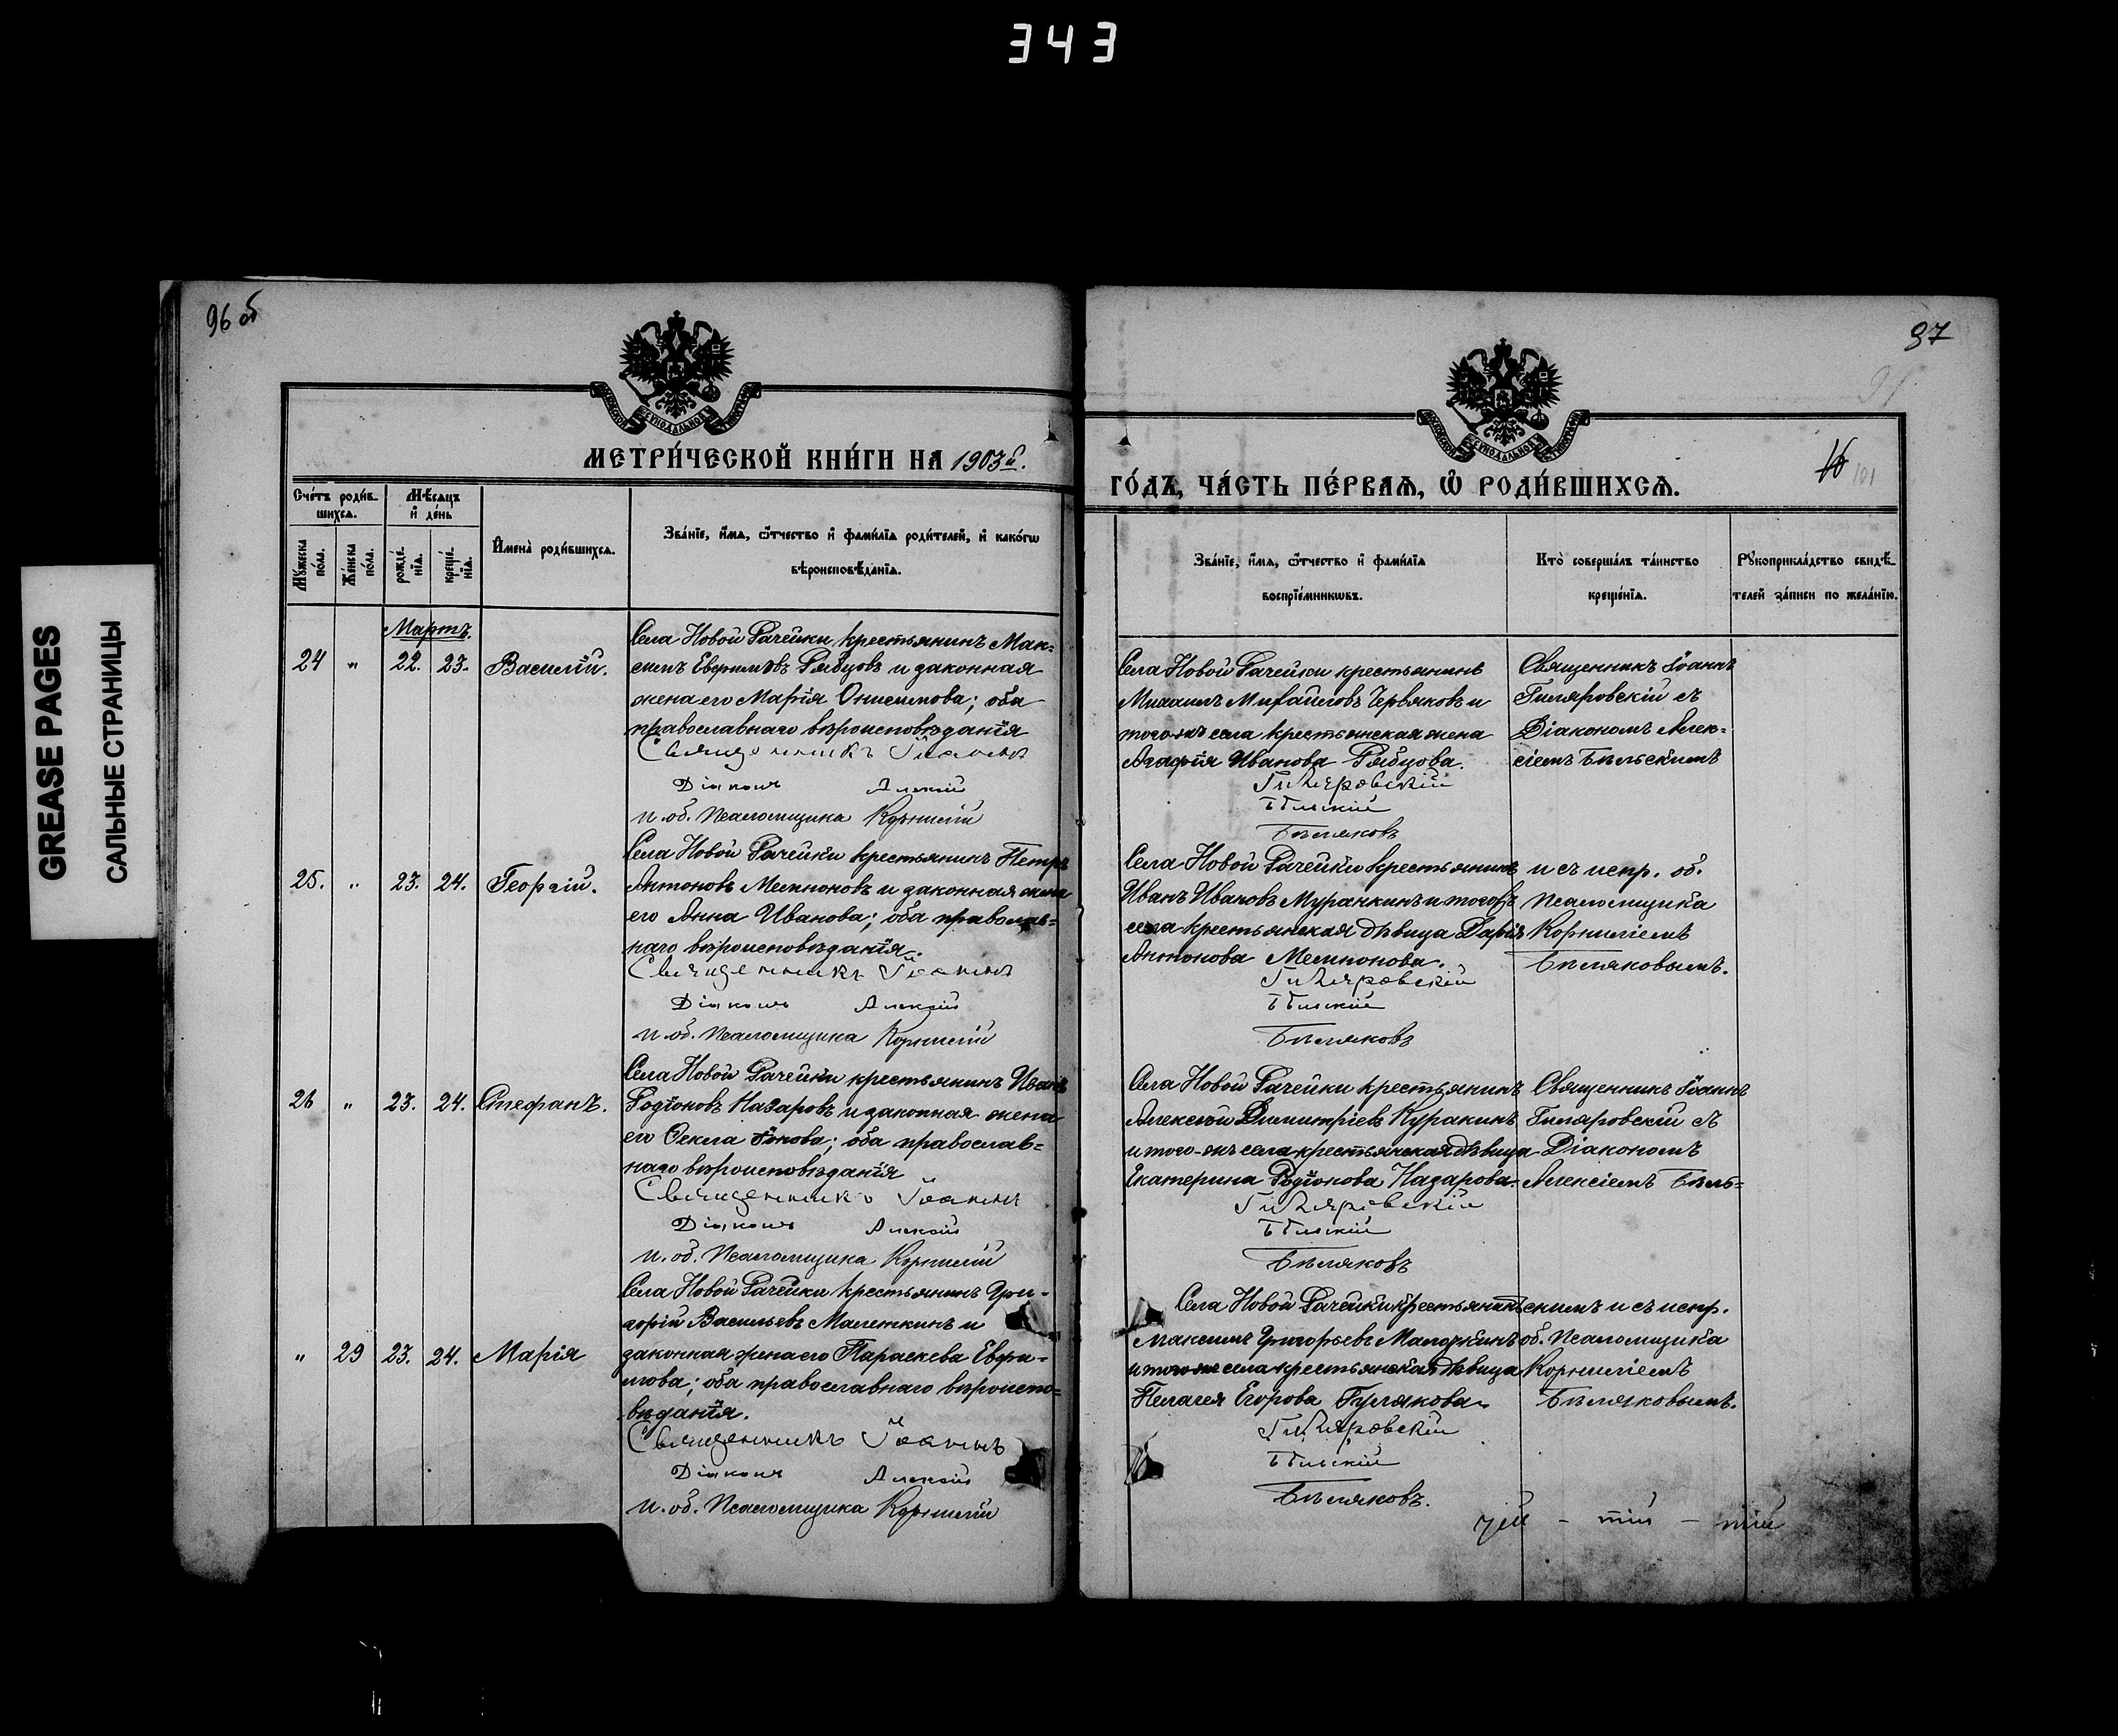 343
GREASE PAGES
САЛЬНЫЕ СТРАНИЦЫ
96 об
МЕТРИ́ЧЕСКОЙ КНИ́ГИ НА 1903й.
Сче́тъ роди́в-
шихся.
Мѣсяцъ
и҆ де́нь
Мꙋ́жеска
по́ла.
Же́нска
по́ла.
рожде́-
нїѧ.
креще́-
нїѧ.
И҆мена̀ роди́вшихсѧ.
Зва́нїе, и҆́мѧ, ѻ҆́тчество и҆ фами́лїѧ роди́телей, и҆ како́гѡ
вѣроисповѣ́данїѧ.
Мартъ.
24 " 22. 23. Василій.
Села Новой Рачейки, крестьянинъ Мак-
симъ Евфимовъ Рябцовъ и законная
жена его Марія Онисимова; оба
православнаго вѣроисповѣданія
Священникъ Іоаннъ
Діаконъ Алексій
и. об. псаломщика Корнилій
25. " 23. 24. Георгій.
Села Новой Рачейки крестьянинъ Петръ
Антоновъ Мемноновъ и законная жена
его Анна Иванова; оба православ=
наго вѣроисповѣданія.
Священникъ Іоаннъ
Діаконъ Алексій
и. об. псаломщика Корнилій
26 " 23. 24. Стефанъ.
Села Новой Рачейки крестьянинъ Иванъ
Родіоновъ Назаровъ и законная жена
его Ѳекла Іонова; оба православ=
наго вѣроисповѣданія
Священникъ Іоаннъ
Діаконъ Алексій
и. об. псаломщика Корнилій
" 29 23. 24. Марія
Села Новой Рачейки крестьянинъ Гри-
горій Васильевъ Малеткинъ и
законная жена его Параскева Евфи-
мова; оба православнаго вѣроиспо=
вѣданія.
Священникъ Іоаннъ
Діаконъ Алексій
и. об. псаломщика Корнилій
97
91
16 101
ГО́ДЪ, ЧА́СТЬ ПЕ́РВАѦ, Ѡ҆ РОДИ́ВШИХСѦ.
Зва́нїе, и҆́мѧ, ѻ҆́тчество и҆ фами́лїѧ
воспрїе́мникѡвъ.
Кто̀ соверша́лъ та́инство
креще́нїѧ.
Рꙋкоприкла́дство свидѣ́-
телей за́писи по жела́нїю.
Села Новой Рачейки крестьянинъ
Михаилъ Михайловъ Червяковъ и
того-жъ села крестьянская жена
Агафія Иванова Рябцова.
Гиляровскій
Бѣльскій
Бѣляковъ
Священникъ Іоаннъ
Гиляровскій съ
Діакономъ Алек-
сіемъ Бѣльскимъ
Села Новой Рачейки крестьянинъ
Иванъ Ивановъ Муранкинъ и тогожъ
села крестьянская дѣвица Дарія
Антонова Мемнонова.
Гиляровскій
Бѣльскій
Бѣляковъ
и съ испр. об.
псаломщика
Корниліемъ
Бѣляковымъ.
Села Новой Рачейки крестьянинъ
Алексѣй Димитріевъ Куракинъ
и того-жъ села крестьянская дѣвица
Екатерина Родіонова Назарова.
Гиляровскій
Бѣльскій
Бѣляковъ
Священникъ Іоаннъ
Гиляровскій съ
Діакономъ
Алексіемъ Бѣль=
Села Новой Рачейки крестьянинъ
Максимъ Григорьевъ Малоткинъ
и того-же села крестьянская дѣвица
Пелагея Егорова Гулякова.
Гиляровскій
Бѣльскій
Бѣляковъ.
скимъ и съ испр.
об. псаломщика
Корниліемъ
Бѣляковымъ.